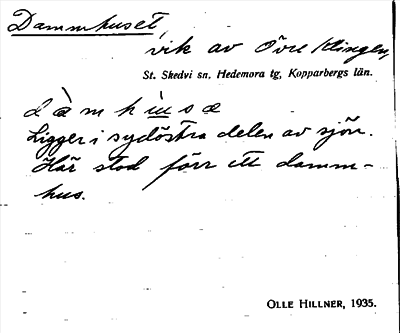 Dammhuset,
vik av Övre Klingen,
St. Skedvi sn, Hedemora tg, Kopparbergs län.
dàmhu̲sæ
Ligger i sydöstra delen av sjön.
Här stod förr ett damm-
hus.
OLLE HILLNER, 1935.